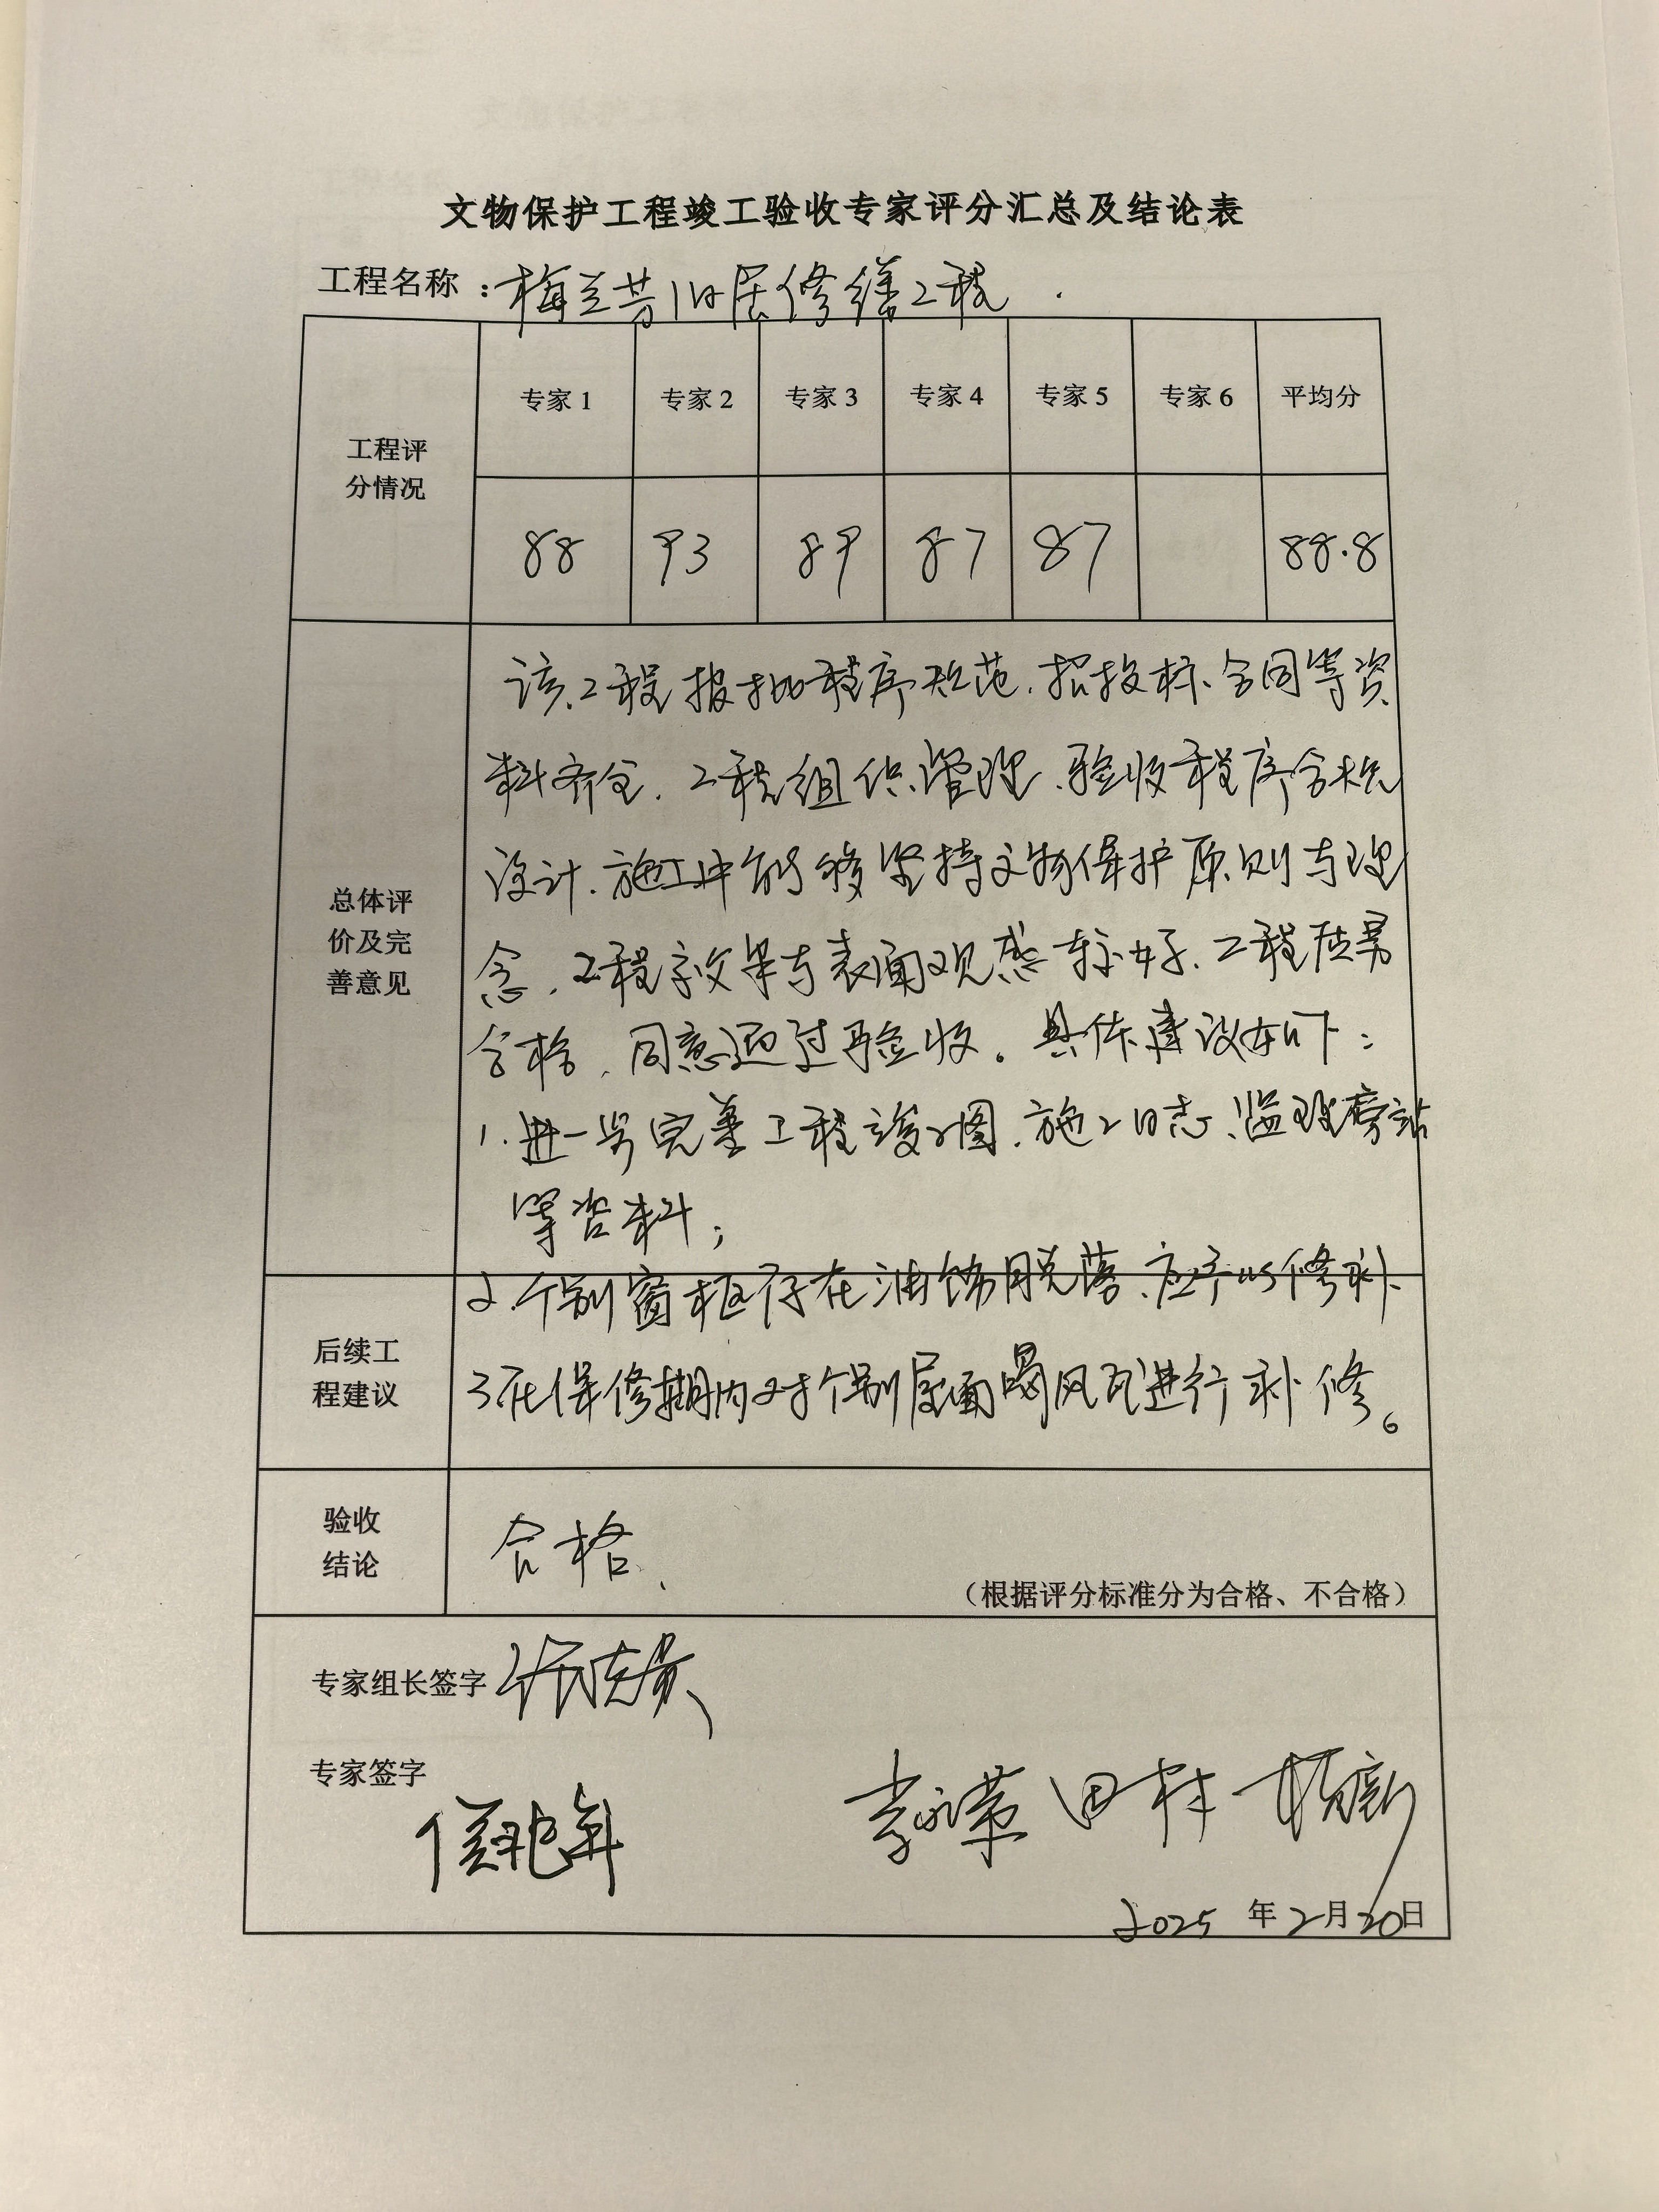 文物保护工程竣工验收专家评分汇总及结论表
工程名称：梅兰芳旧居修缮工程
工程评分情况
专家1 专家2 专家3 专家4 专家5 专家6 平均分
88 93 89 87 87 88.8
总体评价及完善意见
该工程报批程序规范、招投标、合同等资
料齐全、工程组织管理、验收程序合规
设计、施工中能够坚持文物保护原则与理
念，工程效果与表面观感较好、工程质量
合格、同意通过验收。具体建议如下：
1.进一步完善工程竣工图、施工日志、监理旁站
等资料；
2.个别窗框存在油饰脱落、应予以修补
后续工程建议
3在保修期内对个别屋面 瓦进行补修。
验收结论
合格、
（根据评分标准分为合格、不合格）
专家组长签字
专家签字
李永革 田林
2025年2月20日